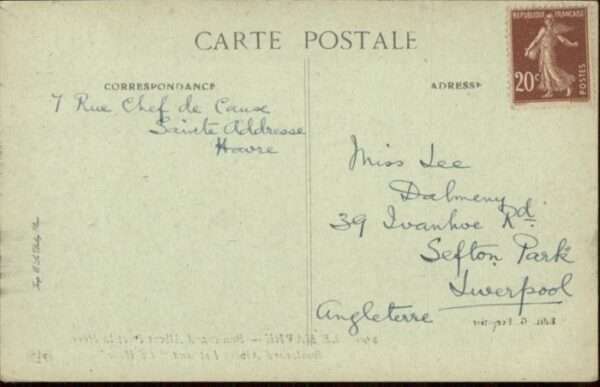 CARTE POSTALE
RÉPUBLIQUE FRANÇAISE
20c
POSTES
CORRESPONDANCE
ADRESSE
7 Rue Chef de Caux
Sainte Addresse
Havre
Miss Lee
Dalmeny
39 Ivanhoe Rd.
Sefton Park
Liverpool
Angleterre